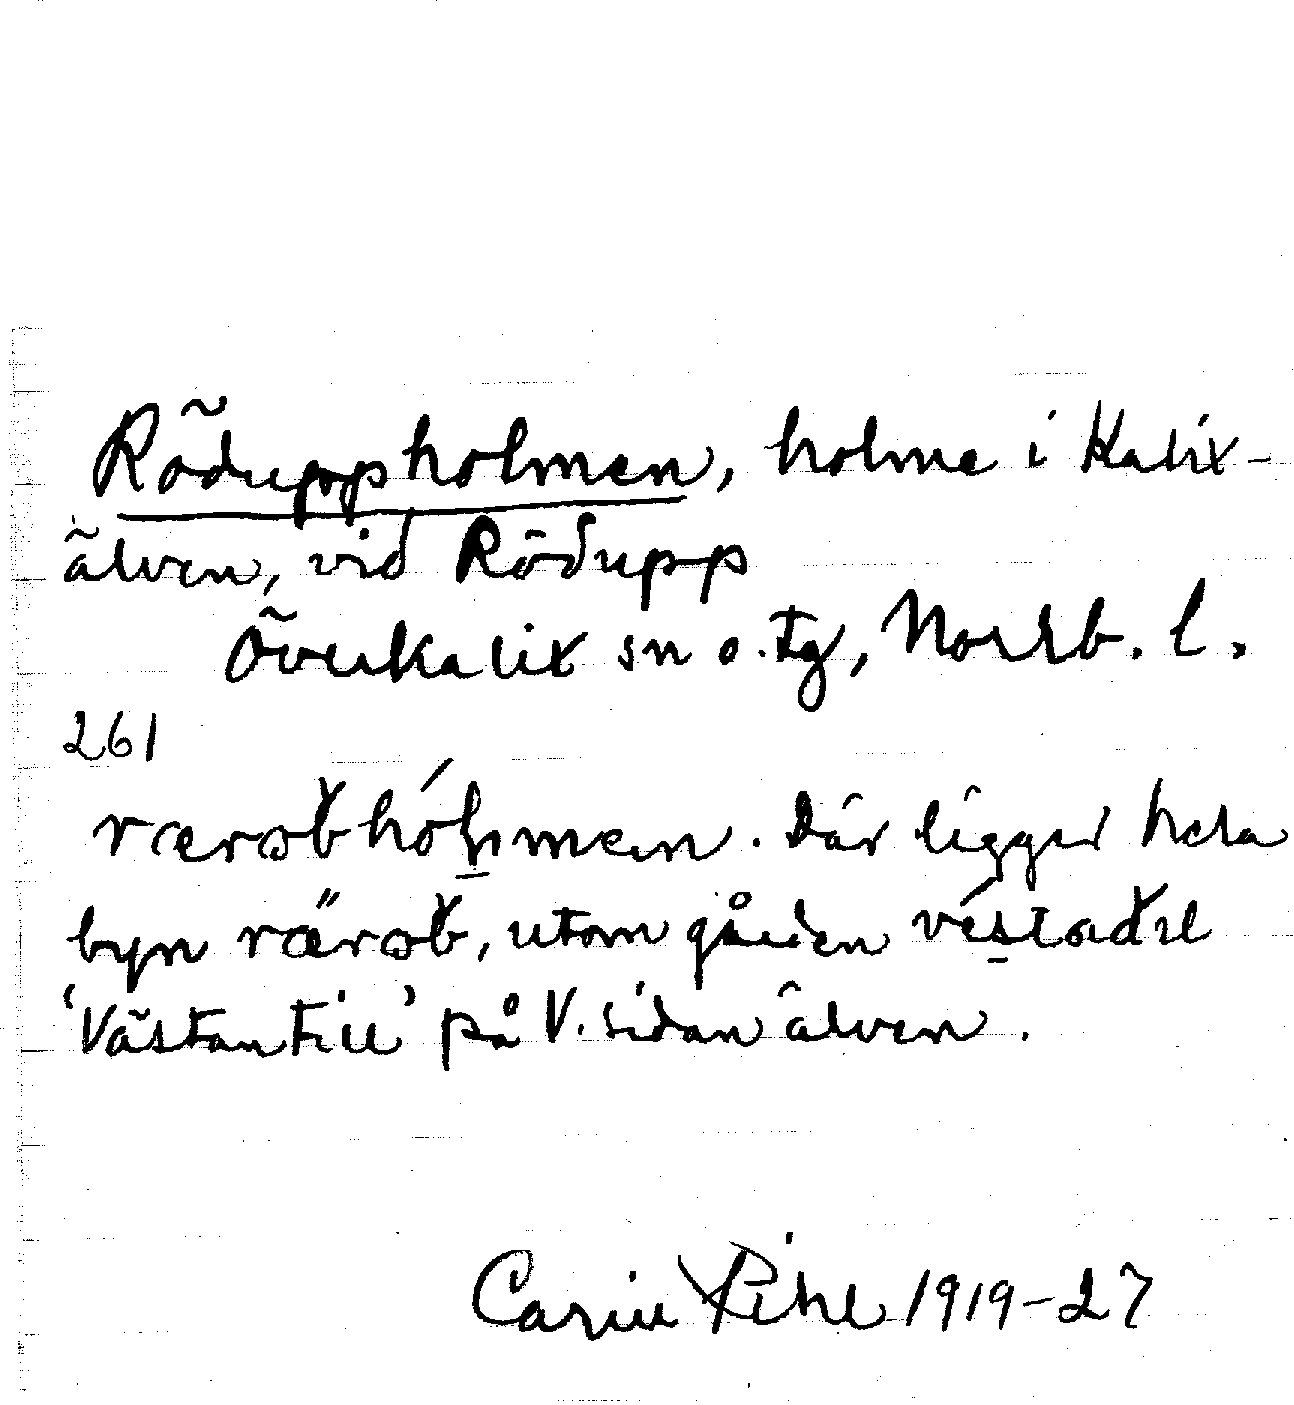 Röduppholmen, holme i Kalix-
älven, vid Rödupp
Överkalix sn o. tg, Norrb. l.
261
rærobhólmen. Där ligger hela
byn rærob, utom gården véstadel
‘Västantill’ på V. sidan älven.
Carin Pihl 1919–27